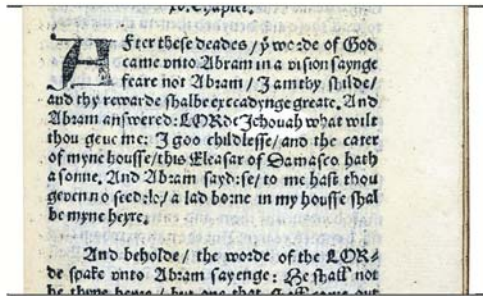 xv. Chapter.
After these deades / ẏ worde of God
came vnto Abram in a vision saynge
feare not Abram / I am thy shilde /
and thy rewarde shalbe exceadynge greate. And
Abram answered: LORde Jehouah what wilt
thou geue me: I goo childlesse / and the cater
of myne housse / this Eleasar of Damasco hath
a sonne. And Abram sayd: se / to me hast thou
geven no seed: lo / a lad borne in my housse shal
be myne heyre.
And beholde / the worde of the LOR⸗
de spake vnto Abram sayenge: He shall not
be thyne heyre / but one that